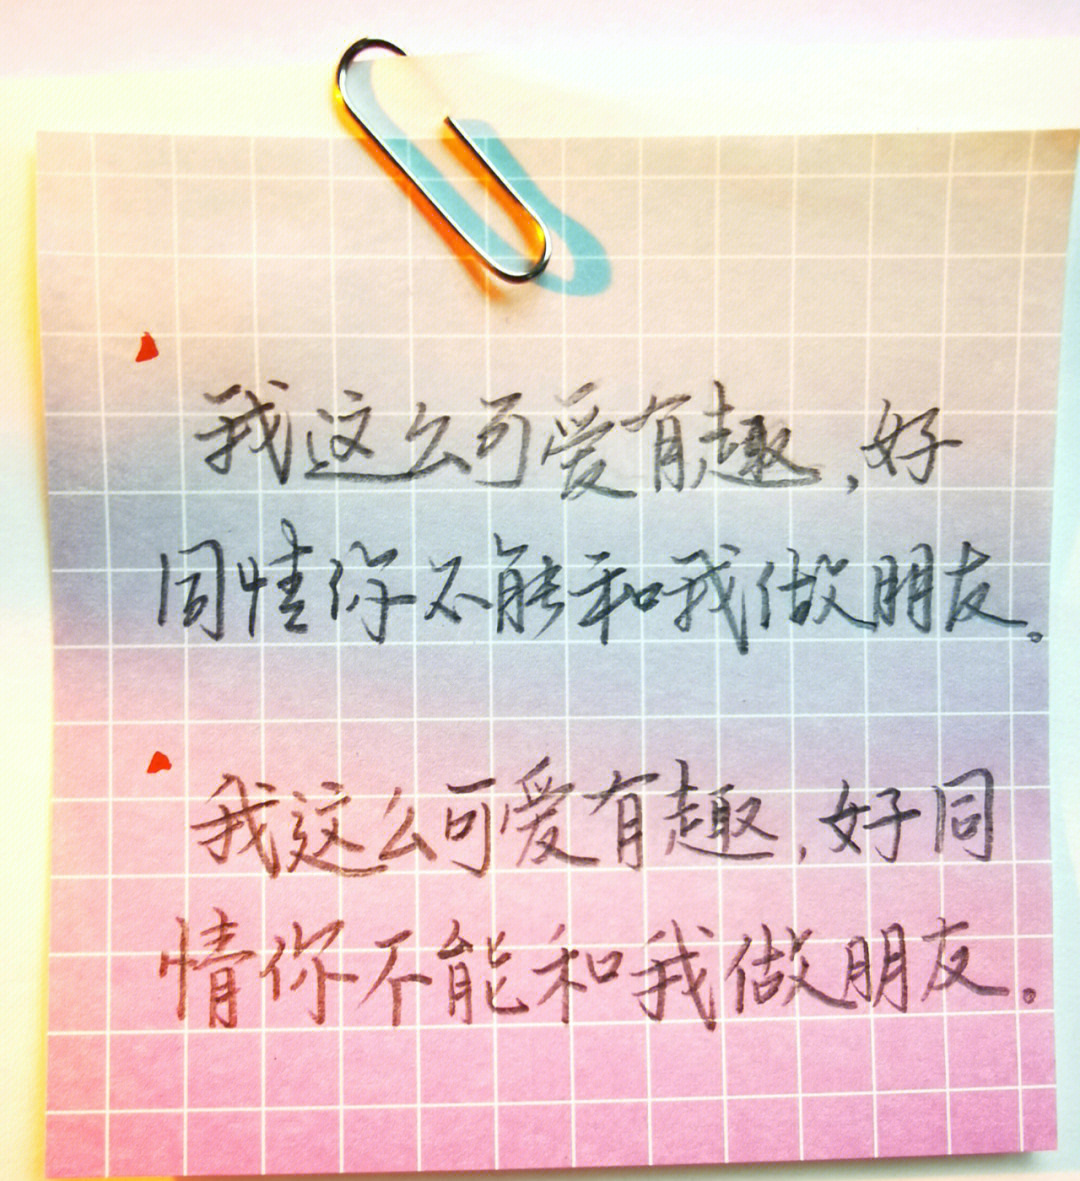 我这么可爱有趣,好
同情你不能和我做朋友。
我这么可爱有趣,好同
情你不能和我做朋友。